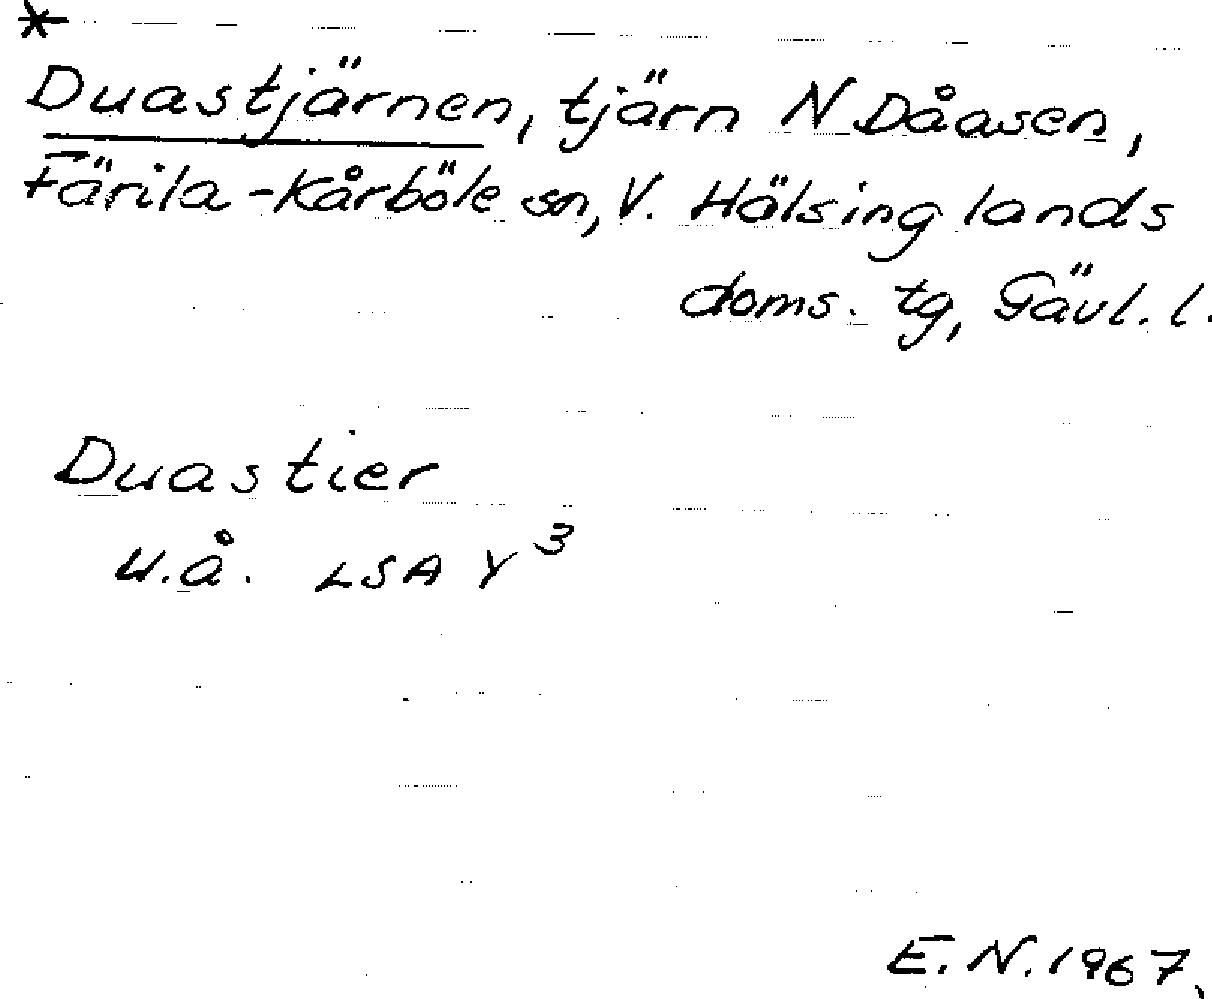 *
Duastjärnen, tjärn N Dåasen,
Färila-Kårböle sn, V. Hälsinglands
doms. tg, Gävl. l.
Duastier
u.å. LSA Y³
E.N. 1967.